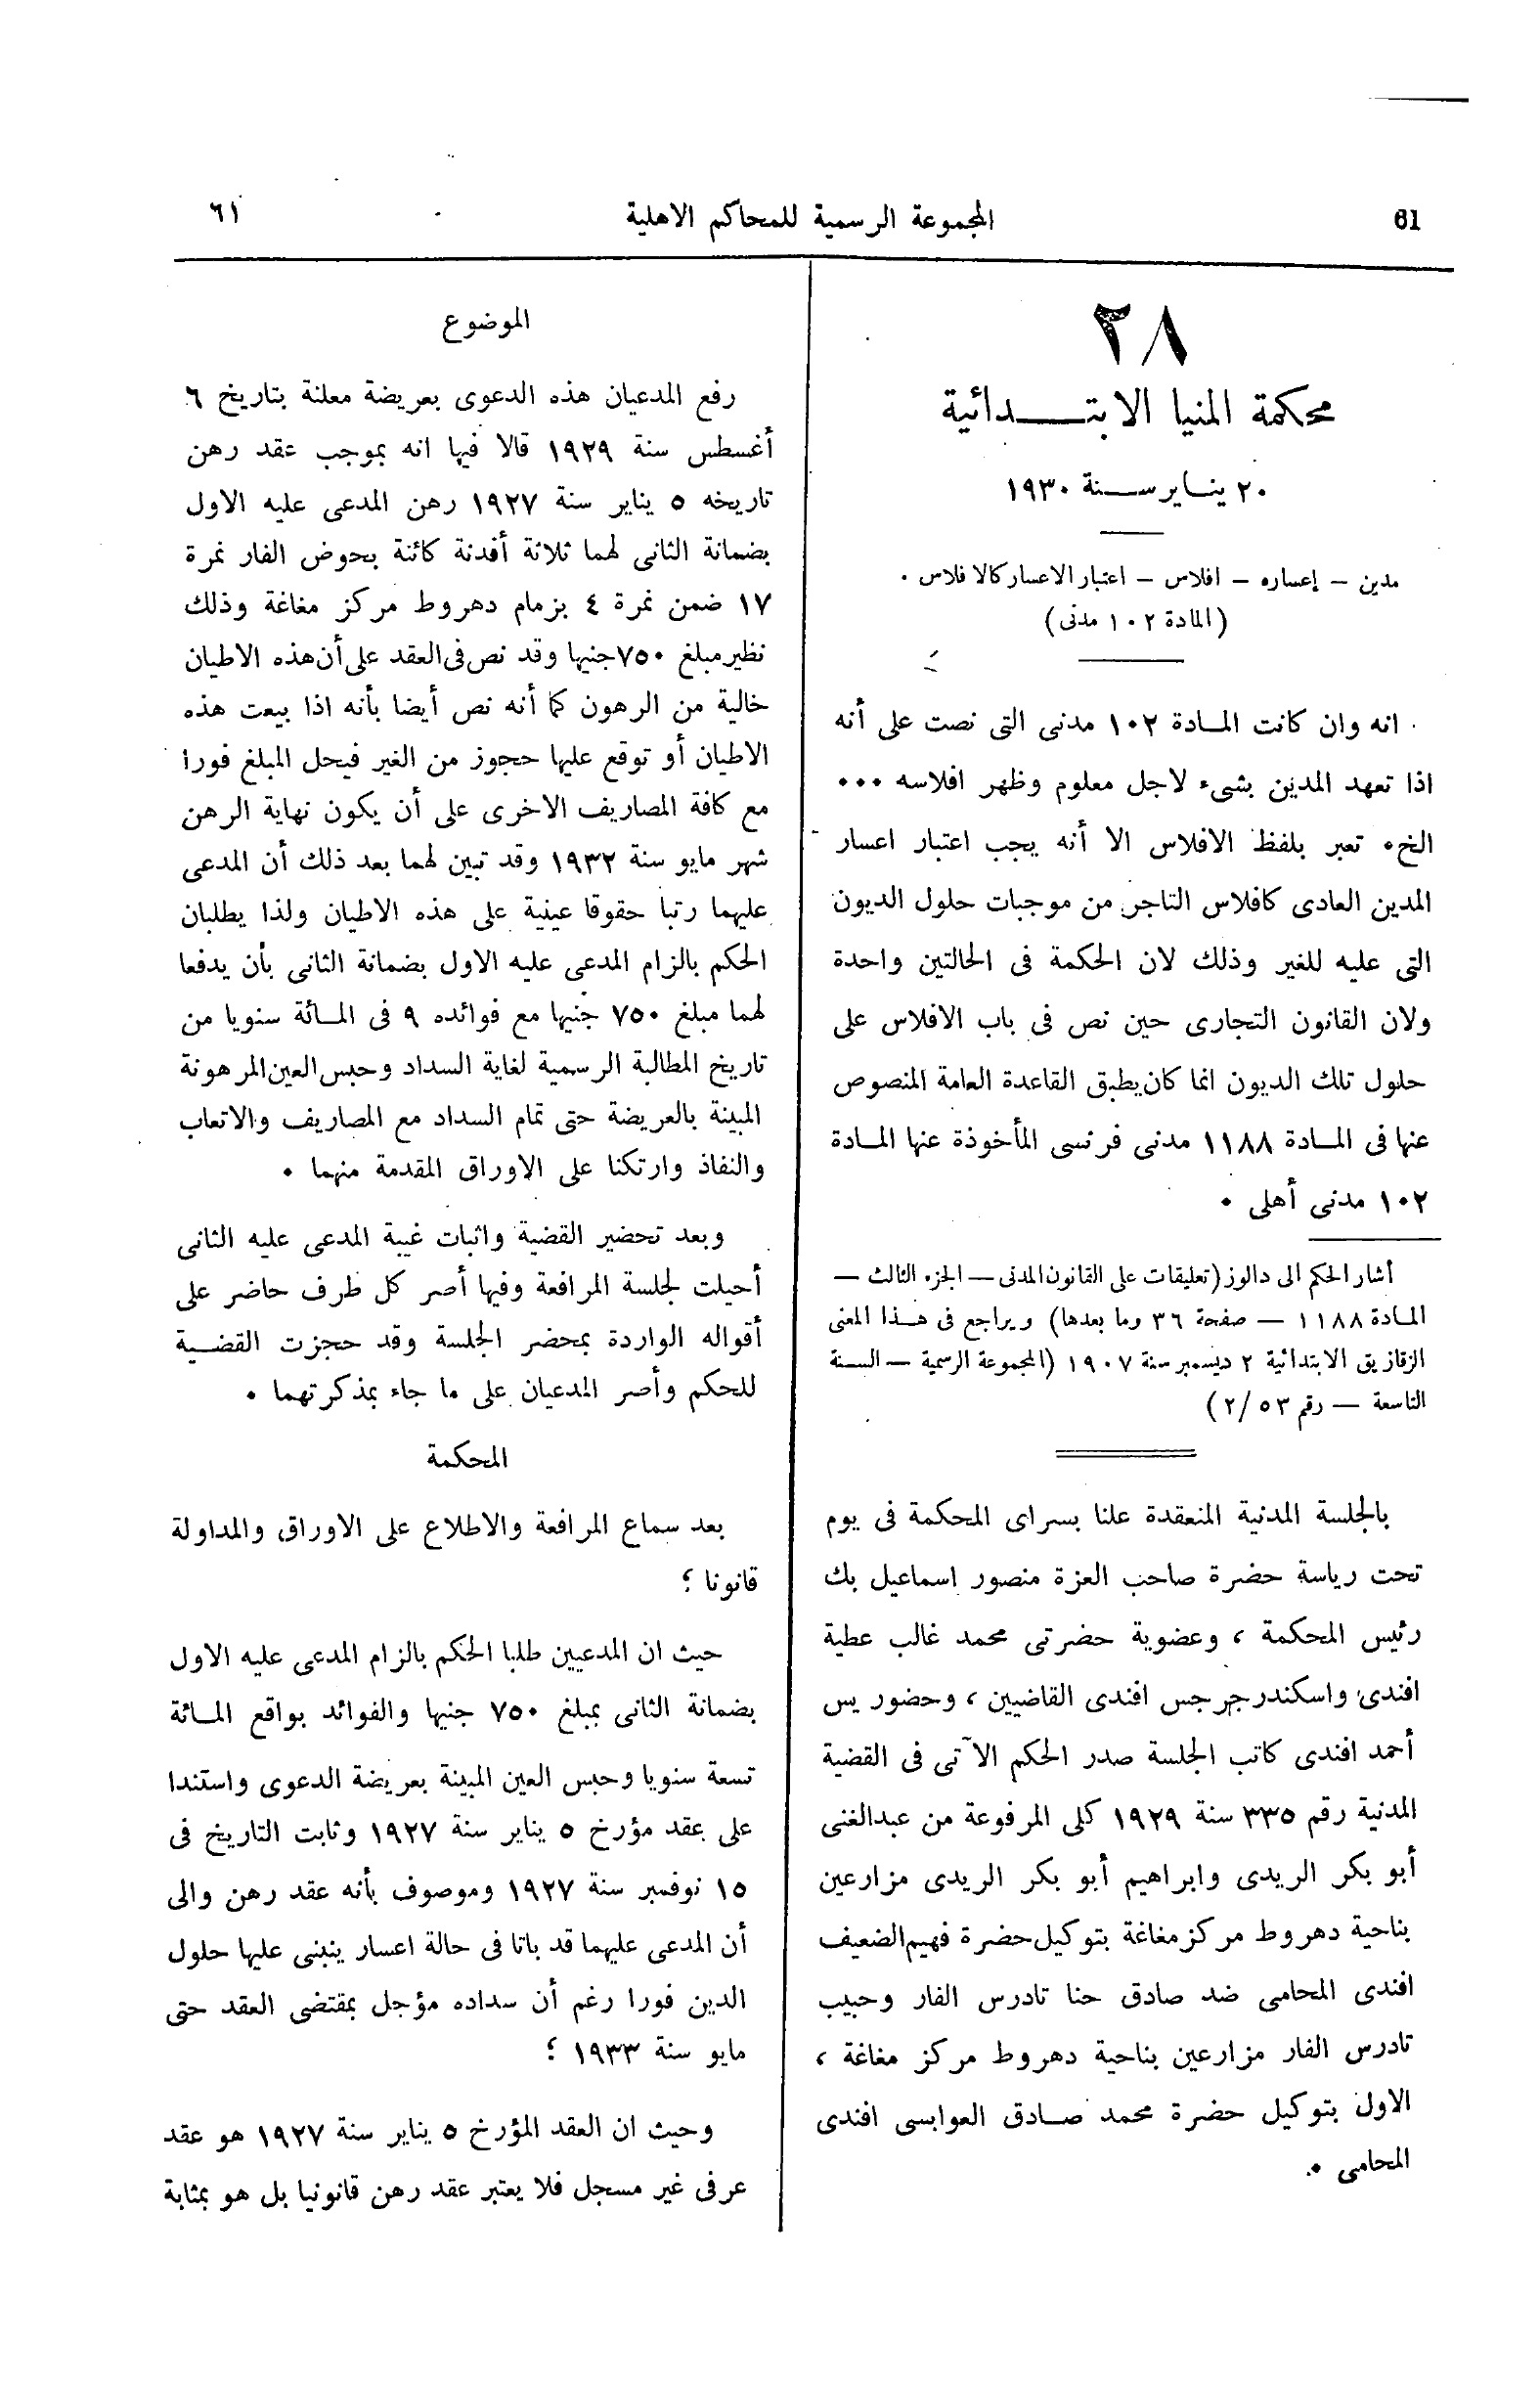 61
المجموعة الرسمية للمحاكم الاهلية
٦١
٢٨
محكمة المنيا الابتدائية
٢٠ يناير سنة ١٩٣٠
مدين – إعساره – افلاس – اعتبار الاعسار كالافلاس ٠
(المادة ١٠٢ مدنى)
انه وان كانت المادة ١٠٢ مدنى التى نصت على أنه
اذا تعهد المدين بشىء لاجل معلوم وظهر افلاسه ٠٠٠
الخ٠ تعبر بلفظ الافلاس الا أنه يجب اعتبار اعسار
المدين العادى كافلاس التاجر من موجبات حلول الديون
التى عليه للغير وذلك لان الحكمة فى الحالتين واحدة
ولان القانون التجارى حين نص فى باب الافلاس على
حلول تلك الديون انما كان يطبق القاعدة العامة المنصوص
عنها فى المادة ١١٨٨ مدنى فرنسى المأخوذة عنها المادة
١٠٢ مدنى أهلى ٠
أشار الحكم الى دالوز (تعليقات على القانون المدنى — الجزء الثالث —
المادة ١١٨٨ — صفحة ٣٦ وما بعدها) ويراجع فى هذا المعنى
الزقازيق الابتدائية ٢ ديسمبر سنة ١٩٠٧ (المجموعة الرسمية — السنة
التاسعة — رقم ٥٣/٢)
بالجلسة المدنية المنعقدة علنا بسراى المحكمة فى يوم
تحت رياسة حضرة صاحب العزة منصور اسماعيل بك
رئيس المحكمة ، وعضوية حضرتى محمد غالب عطية
افندى واسكندر جرجس افندى القاضيين ، وحضور يس
أحمد افندى كاتب الجلسة صدر الحكم الآتى فى القضية
المدنية رقم ٣٣٥ سنة ١٩٢٩ كلى المرفوعة من عبدالغنى
أبو بكر الريدى وابراهيم أبو بكر الريدى مزارعين
بناحية دهروط مركز مغاغة بتوكيل حضرة فهيم الضعيف
افندى المحامى ضد صادق حنا تادرس الفار وحبيب
تادرس الفار مزارعين بناحية دهروط مركز مغاغة ،
الاول بتوكيل حضرة محمد صادق العوابسى افندى
المحامى ٠
الموضوع
رفع المدعيان هذه الدعوى بعريضة معلنة بتاريخ ٦
أغسطس سنة ١٩٢٩ قالا فيها انه بموجب عقد رهن
تاريخه ٥ يناير سنة ١٩٢٧ رهن المدعى عليه الاول
بضمانة الثانى لهما ثلاثة أفدنة كائنة بحوض الفار نمرة
١٧ ضمن نمرة ٤ بزمام دهروط مركز مغاغة وذلك
نظير مبلغ ٧٥٠ جنيها وقد نص فى العقد على أن هذه الاطيان
خالية من الرهون كما أنه نص أيضا بأنه اذا بيعت هذه
الاطيان أو توقع عليها حجوز من الغير فيحل المبلغ فورا
مع كافة المصاريف الاخرى على أن يكون نهاية الرهن
شهر مايو سنة ١٩٣٢ وقد تبين لهما بعد ذلك أن المدعى
عليهما رتبا حقوقا عينية على هذه الاطيان ولذا يطلبان
الحكم بالزام المدعى عليه الاول بضمانة الثانى بأن يدفعا
لهما مبلغ ٧٥٠ جنيها مع فوائده ٩ فى المائة سنويا من
تاريخ المطالبة الرسمية لغاية السداد وحبس العين المرهونة
المبينة بالعريضة حتى تمام السداد مع المصاريف والاتعاب
والنفاذ وارتكنا على الاوراق المقدمة منهما ٠
وبعد تحضير القضية واثبات غيبة المدعى عليه الثانى
أحيلت لجلسة المرافعة وفيها أصر كل طرف حاضر على
أقواله الواردة بمحضر الجلسة وقد حجزت القضية
للحكم وأصر المدعيان على ما جاء بمذكرتهما ٠
المحكمة
بعد سماع المرافعة والاطلاع على الاوراق والمداولة
قانونا ؛
حيث ان المدعيين طلبا الحكم بالزام المدعى عليه الاول
بضمانة الثانى بمبلغ ٧٥٠ جنيها والفوائد بواقع المائة
تسعة سنويا وحبس العين المبينة بعريضة الدعوى واستندا
على عقد مؤرخ ٥ يناير سنة ١٩٢٧ وثابت التاريخ فى
١٥ نوفمبر سنة ١٩٢٧ وموصوف بأنه عقد رهن والى
أن المدعى عليهما قد باتا فى حالة اعسار ينبنى عليها حلول
الدين فورا رغم أن سداده مؤجل بمقتضى العقد حتى
مايو سنة ١٩٣٣ ؛
وحيث ان العقد المؤرخ ٥ يناير سنة ١٩٢٧ هو عقد
عرفى غير مسجل فلا يعتبر عقد رهن قانونيا بل هو بمثابة